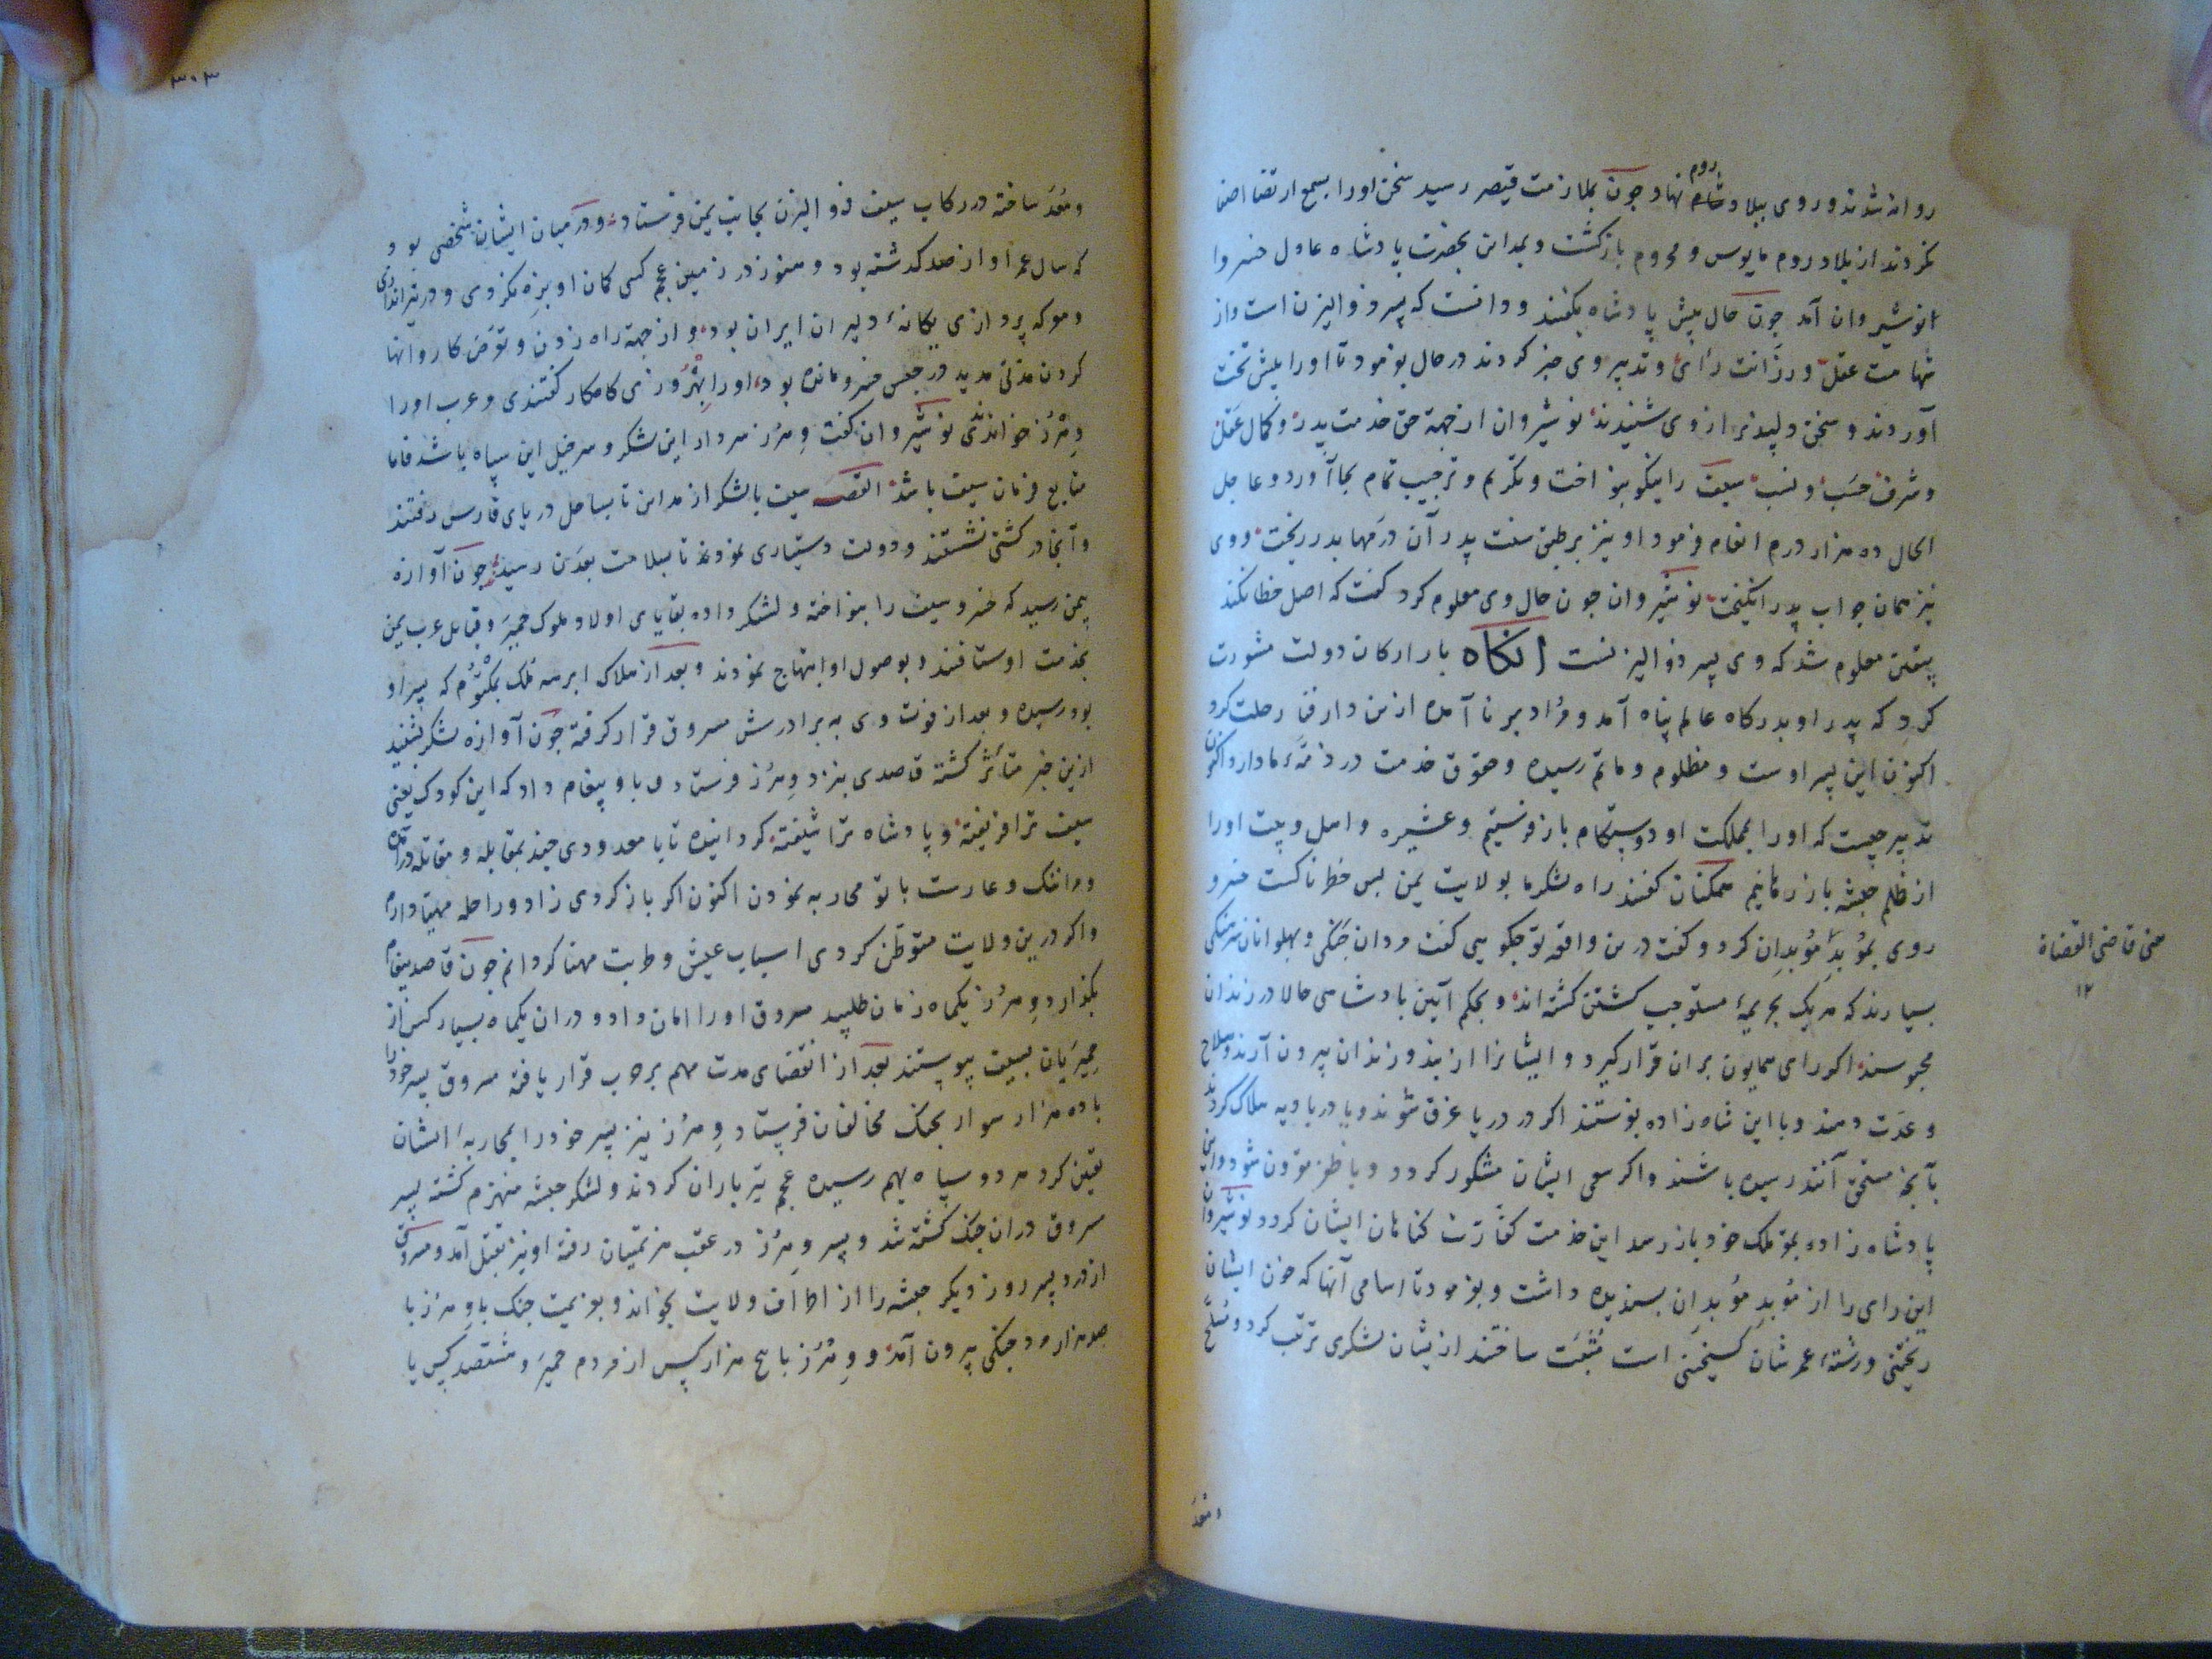 روانه شدند و روی ببلاد شام نهاد چون بملازمت قیصر رسید سخن او را بسمع ارتضا اصغا
روم
نکردند از بلاد روم مایوس و محروم بازگشت و بمداین بحضرت پادشاه عادل خسرو
انوشیروان آمد چون حال پیش پادشاه بگفتند و دانست که پسر ذوالیزن است و از
شهامت عقل و رزانت رای و تدبیر وی خبر کردند در حال بفرمود تا او را پیش تخت
آوردند و سخن دلپذیر از وی شنیدند نوشیروان از جهة حق خدمت پدر و کمال عقل
و شرف حسب و نسب سیف را نیکو بنواخت و تکریم و ترحیب تمام بجا آورد و عاجل
الحال ده هزار درم انعام فرمود او نیز بر طبق سنت پدر آن درمها بدر ریخت و وی
نیز همان جواب پدر انگیخت نوشیروان چون حال وی معلوم کرد گفت که اصل خطا نکند
بیقین معلوم شد که وی پسر ذوالیزنست انکاه با ارکان دولت مشورت
کرد که پدر او بدرکاه عالم پناه آمد و مراد بر نا آمده ازین دار فنا رحلت کرد
اکنون این پسر اوست و مظلوم و ماتم رسیده و حقوق خدمت در ذمهٔ ما دارد اکنون
تدبیر چیست که او را بمملکت او دوستکام باز فرستیم و عشیره و اهل و بیت او را
از ظلم حبشه باز رهانیم همکنان گفتند راه لشکر ما بولایت یمن بس خطرناکست خسرو
روی بموبد موبدان کرد و گفت درین واقعه تو چکویی گفت مردان جنگی و پهلوانان سرهنگی
بسیارند که هر یک بجریمهٔ مستوجب کشتن گشته اند و بحکم آیین پادشاهی حالا در زندان
محبوسند اکر رای همایون بران قرار گیرد و ایشانرا از بند و زندان بیرون آرند و سلاح
و عدت دهند و با این شاه زاده بفرستند اکر در دریا غرق شوند و یا در بادیه هلاک کردند
بآنچه مستحق آنند رسیده باشند و اکر سعی ایشان مشکور کردد و با ظفر مقرون شود و این
پادشاه زاده بمقر ملک خود باز رسد این خدمت کفارت کناهان ایشان کردد نوشیروان
این رای را از موبد موبدان پسندیده داشت و بفرمود تا اسامی آنها که خون ایشان
ریختنی و رشتهٔ عمرشان کسیختنی است مثبت ساختند ازیشان لشکری ترتیب کرد و مسلح
و معد
معنی قاضی القضاة
١٢
٣٠٣
و معد ساخته در رکاب سیف ذوالیزن بجانب یمن فرستاد و در میان ایشان شخصی بود
که سال عمر او از صد گذشته بود و هنوز در زمین عجم کسی کمان او بزه نکردی و در تیراندازی
و معرکه پردازی یکانهٔ دلیران ایران بود و از جهة راه زدن و تعرض کاروانها
کردن مدتی مدید در حبس خسرو مانده بود او را بهروزی کامکار گفتندی و عرب او را
وهرز خواندندی نوشیروان گفت وهرز سردار این لشکر و سرخیل این سپاه باشد فاما
متابع فرمان سیف باشد القصه سیف با لشکر از مداین تا بساحل دریای فارس رفتند
و آنجا در کشتی نشستند و دولت دستیاری نمودند تا بسلامت بعدن رسید چون آوازه
بیمن رسید که خسرو سیف را بنواخته و لشکر داده بقایای اولاد ملوک حمیر و قبایل عرب یمن
بخدمت او شتافتند و بوصول او ابتهاج نمودند و بعد از هلاک ابرهه ملک بیکثوم که پسر او
بود رسیده و بعد از فوت وی به برادرش مسروق قرار گرفته چون آوازه لشکر بشنید
ازین خبر متأثر گشته قاصدی بنزد وهرز فرستاد و باو پیغام داد که این کودک یعنی
سیف ترا فریفته و پادشاه ترا شیفته کردانیده تا با معدودی چند بمقابله و مقاتله در آمده
و مرا ننک و عارست با تو محاربه نمودن اکنون اکر باز کردی زاد و راحله مهیا دارم
و اکر درین ولایت متوطن کردی اسباب عیش و طربت مهنا کردانم چون قاصد پیغام
بگذارد وهرز یکماه زمان طلبید مسروق او را امان داد و دران یکماه بسیار کس از
حمیریان بسیف پیوستند بعد از انقضای مدت مهم بر حرب قرار یافته مسروق پسر خود را
با ده هزار سوار بجنک مخالفان فرستاد وهرز نیز پسر خود را بمحاربهٔ ایشان
تعیین کرد هر دو سپاه بهم رسیده عجم تیر باران کردند و لشکر حبشه منهزم گشته پسر
مسروق دران جنک کشته شد و پسر وهرز در عقب هزیمتیان رفته او نیز بقتل آمد و مسروق
از درد پسر روز دیکر حبشه را از اطراف ولایت بخواند و بعزیمت جنک با وهرز با
صد هزار مرد جنکی بیرون آمد و وهرز با پنج هزار کس از مردم حمیر و ششصد کس با